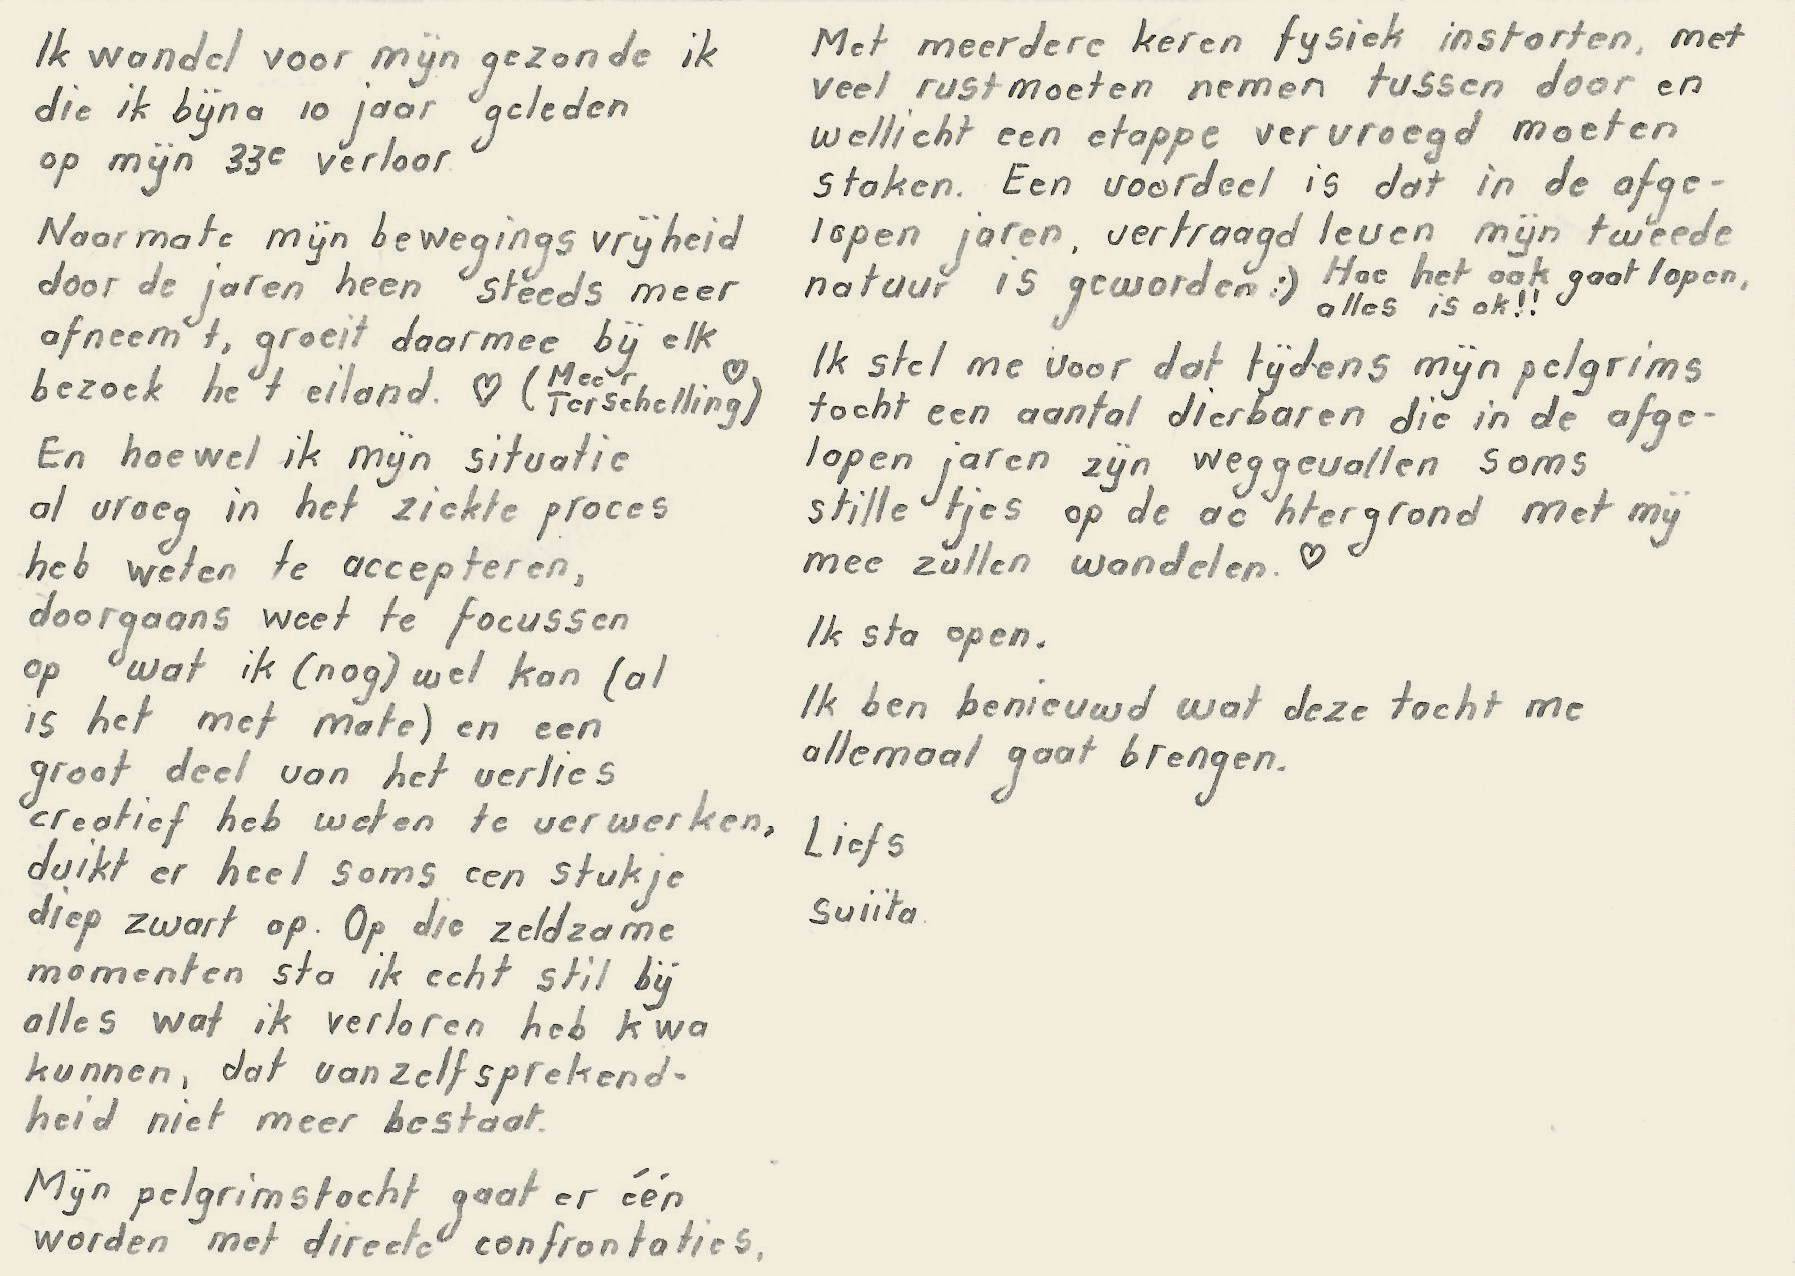 Ik wandel voor mijn gezonde ik
die ik bijna 10 jaar geleden
op mijn 33e verloor.
Naarmate mijn bewegingsvrijheid
door de jaren heen steeds meer
afneemt, groeit daarmee bij elk
bezoek het eiland. ♡ (Meer Terschelling) ♡
En hoewel ik mijn situatie
al vroeg in het ziekteproces
heb weten te accepteren,
doorgaans weet te focussen
op wat ik (nog) wel kan (al
is het met mate) en een
groot deel van het verlies
creatief heb weten te verwerken,
duikt er heel soms een stukje
diep zwart op. Op die zeldzame
momenten sta ik echt stil bij
alles wat ik verloren heb kwa
kunnen, dat vanzelfsprekend-
heid niet meer bestaat.
Mijn pelgrimstocht gaat er één
worden met directe confrontaties.
Met meerdere keren fysiek instorten, met
veel rust moeten nemen tussen door en
wellicht een etappe vervroegd moeten
staken. Een voordeel is dat in de afge-
lopen jaren, vertraagd leven mijn tweede
natuur is geworden :) Hoe het ook gaat lopen,
alles is ok!!
Ik stel me voor dat tijdens mijn pelgrims
tocht een aantal dierbaren die in de afge-
lopen jaren zijn weggevallen soms
stilletjes op de achtergrond met mij
mee zullen wandelen. ♡
Ik sta open.
Ik ben benieuwd wat deze tocht me
allemaal gaat brengen.
Liefs
suiita